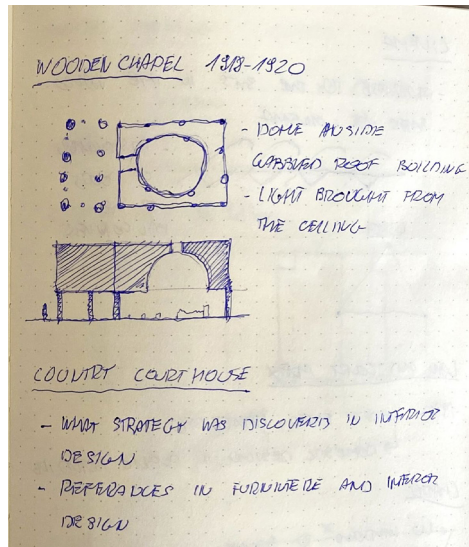 WOODEN CHAPEL 1918-1920
- DOME INSIDE
GABBLED ROOF BUILDING
- LIGHT BROUGHT FROM
THE CEILLING
COUNTRY COURT HOUSE
- WHAT STRATEGY WAS DISCOVERIS IN INTERIOR
DESIGN
- REFERANCES IN FURNITERE AND INTERIOR
DESIGN